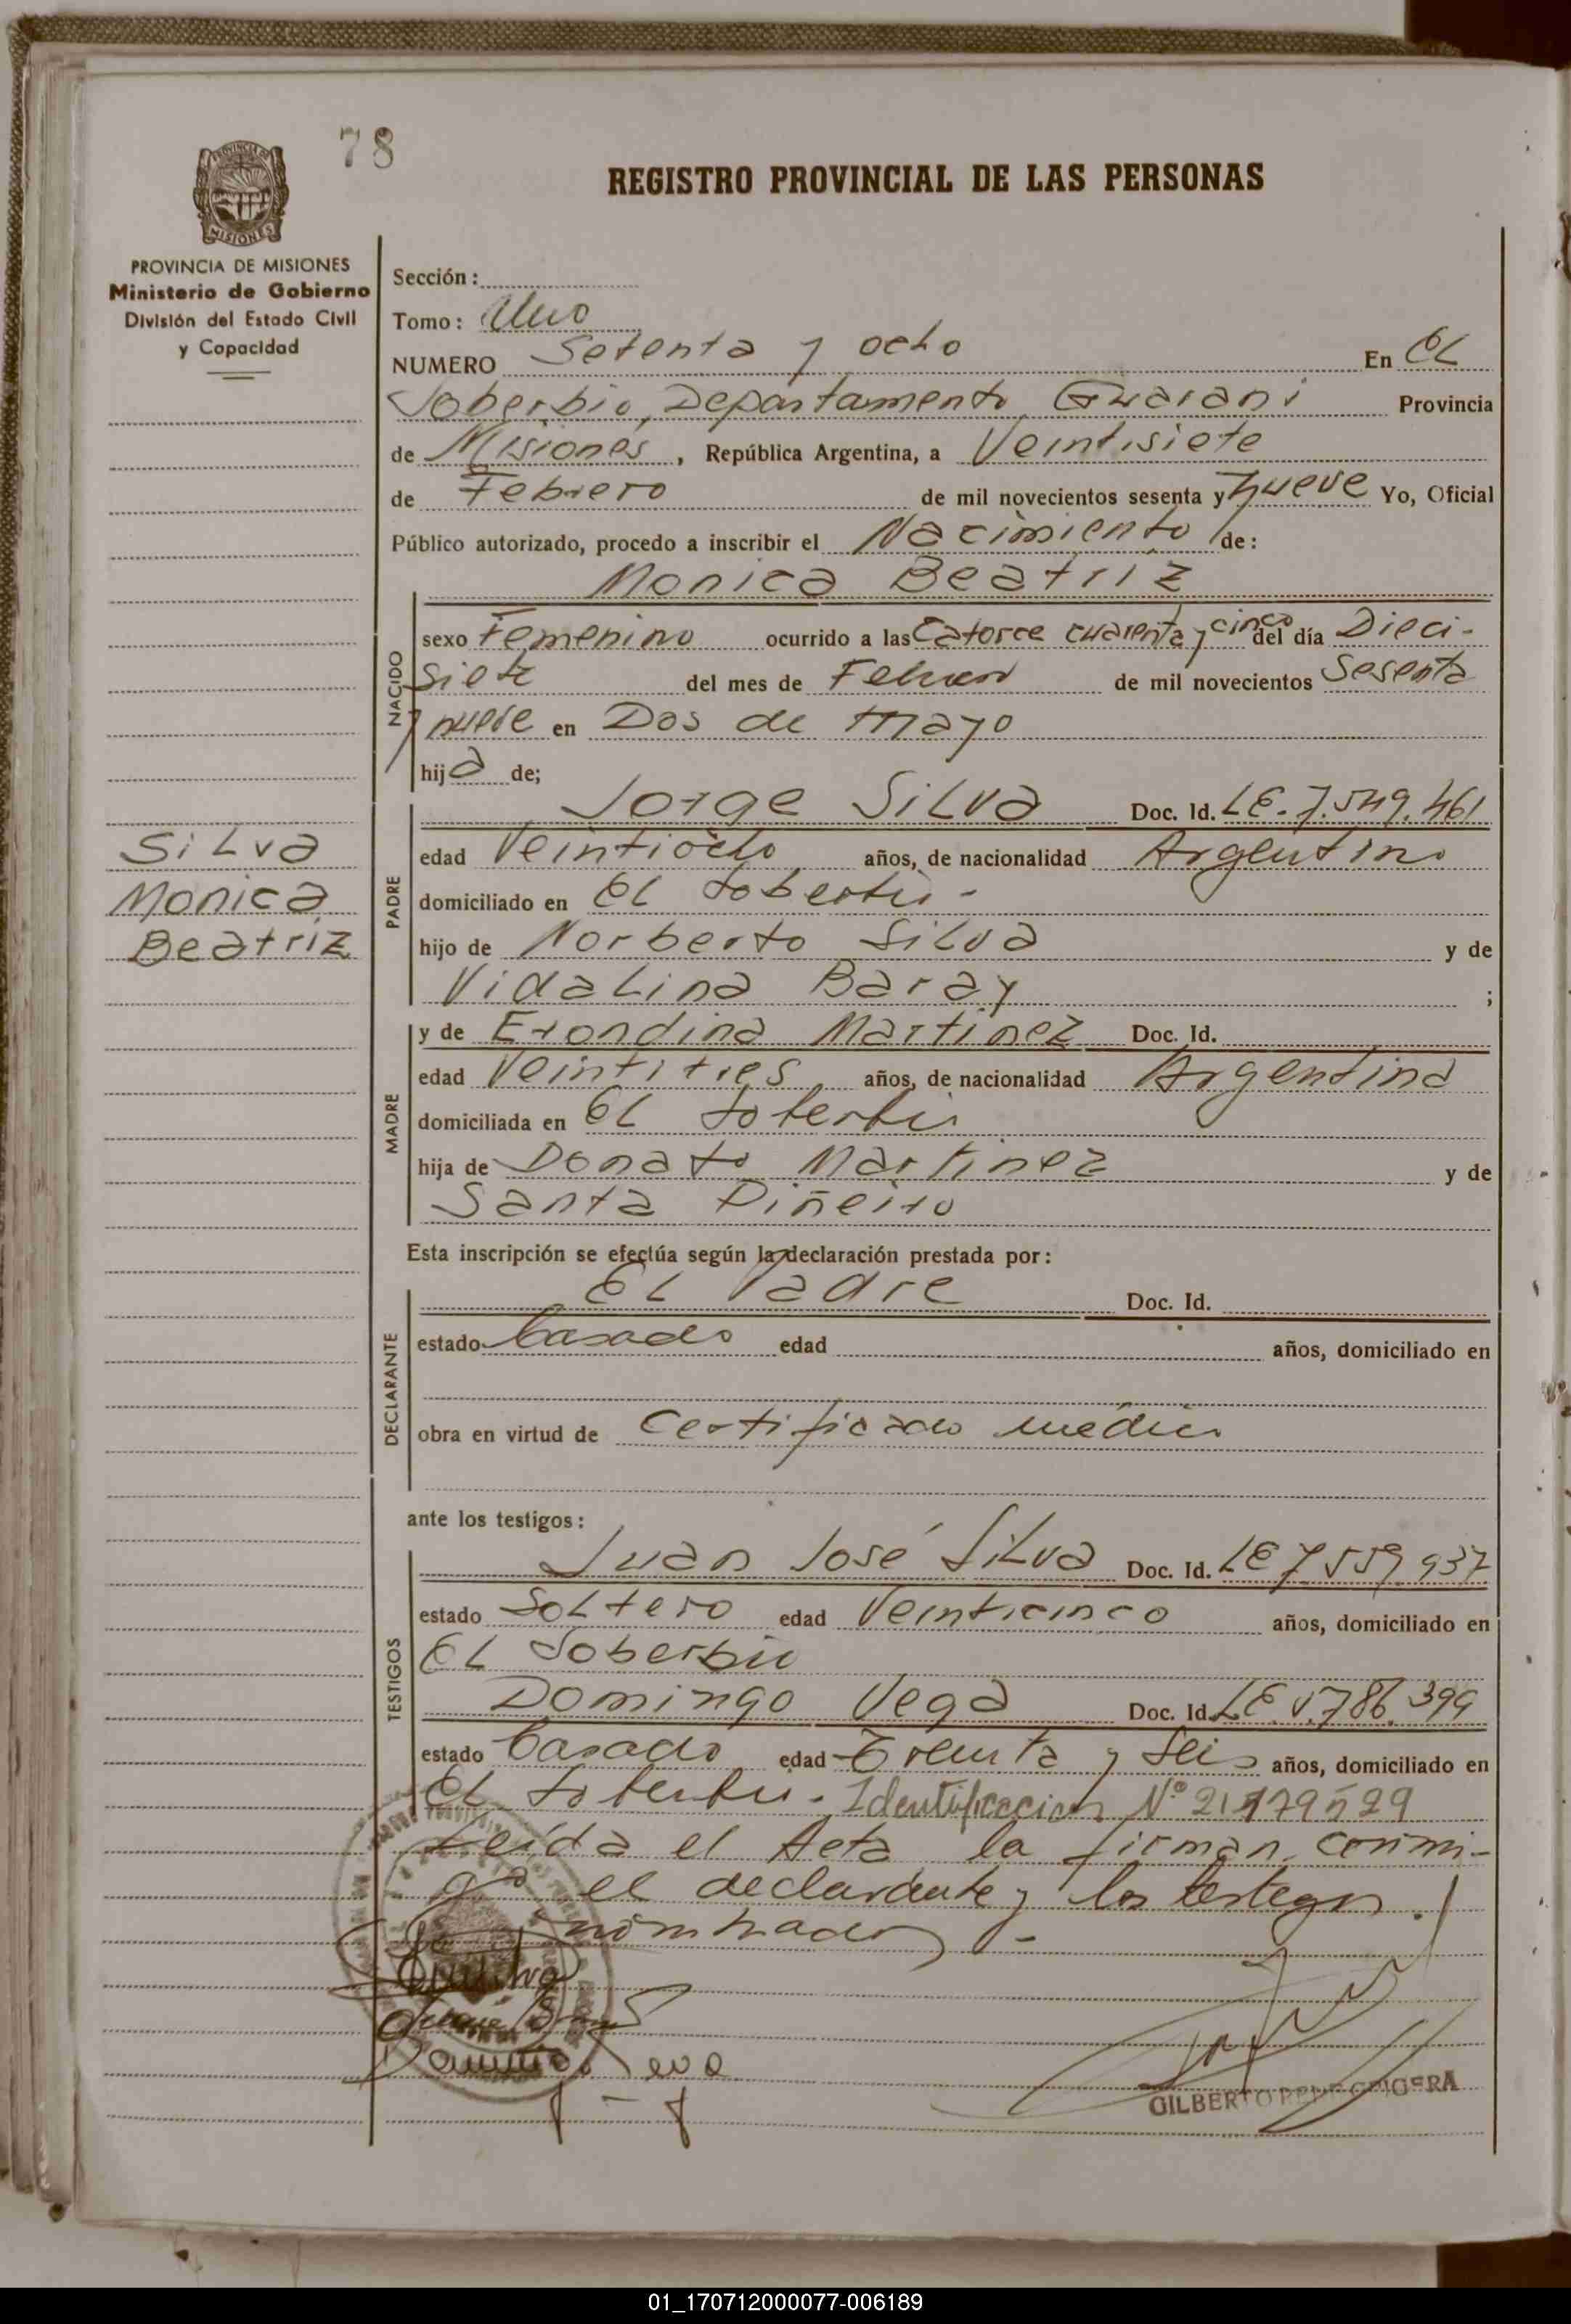 78
REGISTRO PROVINCIAL DE LAS PERSONAS
PROVINCIA DE
MISIONES
PROVINCIA DE MISIONES
Ministerio de Gobierno
División del Estado Civil
y Capacidad
Sección:
Tomo: Uno
NUMERO Setenta y ocho En EL
Soberbio, Departamento Guarani Provincia
de Misiones, República Argentina, a Veintisiete
de Febrero de mil novecientos sesenta y nueve Yo, Oficial
Público autorizado, procedo a inscribir el Nacimiento de:
Monica Beatriz
NACIDO
sexo Femenino ocurrido a las Catorce cuarenta y cinco del día Dieci-
siete del mes de Febrero de mil novecientos Sesenta
y nueve en Dos de Mayo
hija de;
Silva
Monica
Beatriz
PADRE
Jorge Silva Doc. Id. LE. 7.549.461
edad Veintiocho años, de nacionalidad Argentino
domiciliado en EL Soberbio -
hijo de Norberto Silva y de
Vidalina Baray ;
MADRE
y de Erondina Martinez Doc. Id.
edad Veintitres años, de nacionalidad Argentina
domiciliada en EL Soberbio
hija de Donato Martinez y de
Santa Piñeiro
Esta inscripción se efectúa según la declaración prestada por:
DECLARANTE
EL Padre Doc. Id.
estado Casado edad años, domiciliado en
obra en virtud de Certificado médico
ante los testigos:
TESTIGOS
Juan José Silva Doc. Id. LE 7.559.937
estado Soltero edad Veinticinco años, domiciliado en
EL Soberbio
Domingo Vega Doc. Id. LE. 5.786.399
estado Casado edad Treinta y Seis años, domiciliado en
EL Soberbio. Identificacion Nº 21179529
Leída el Acta la firman conmi-
go el declarante y los testigos
nombrados -
GILBERTO RENE
01_170712000077-006189